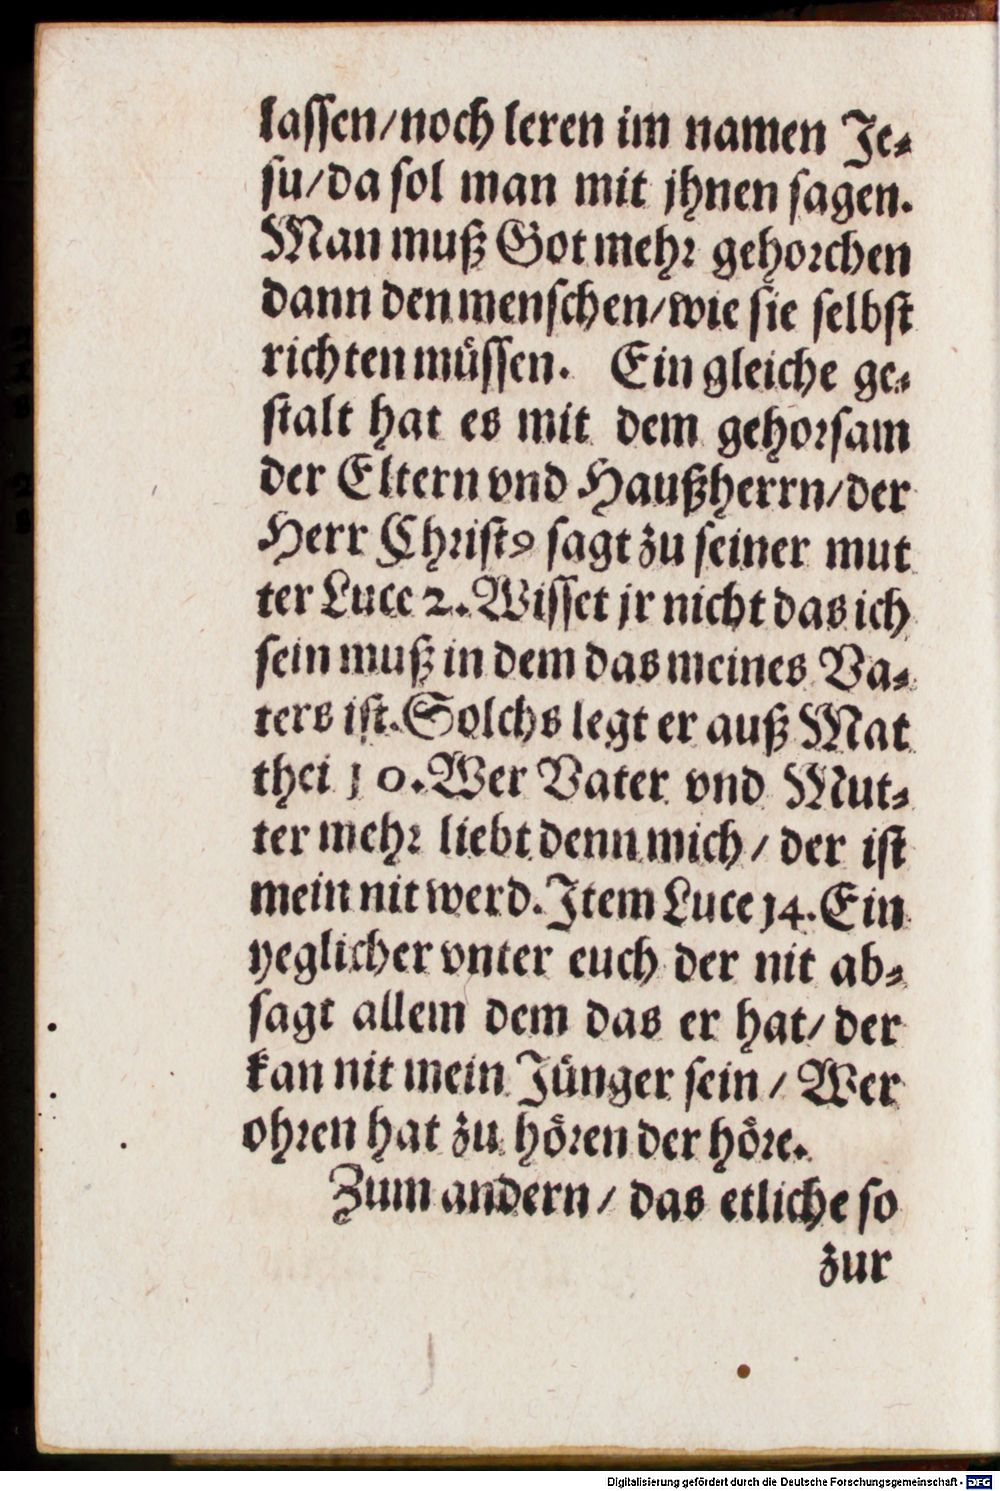 lassen/noch leren im namen Je⸗
su/da sol man mit jhnen sagen.
Man muß Got mehr gehorchen
dann den menschen/wie sie selbst
richten müssen. Ein gleiche ge⸗
stalt hat es mit dem gehorsam
der Eltern vnd Haußherrn/der
Herr Christꝰ sagt zu seiner mut
ter Luce 2. Wisset jr nicht das ich
sein muß in dem das meines Va⸗
ters ist. Solchs legt er auß Mat
thei 10. Wer Vater vnd Mut⸗
ter mehr liebt denn mich/ der ist
mein nit werd. Item Luce 14. Ein
yeglicher vnter euch der nit ab⸗
sagt allem dem das er hat/ der
kan nit mein Jünger sein / Wer
ohren hat zu hören der höre.
Zum andern/ das etliche so
zur
Digitalisierung gefördert durch die Deutsche Forschungsgemeinschaft - DFG